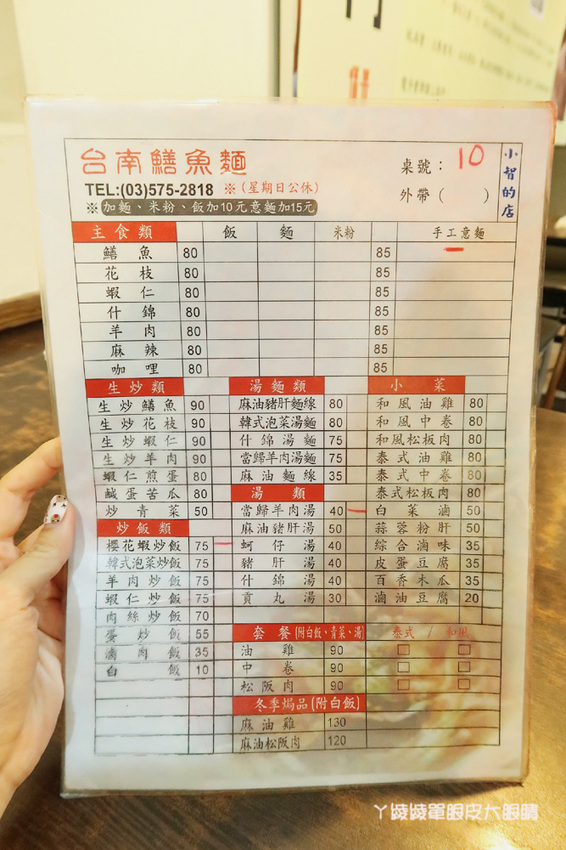 台南鱔魚麵
桌號： 10
小智的店
TEL:(03)575-2818 ※(星期日公休)
外帶( )
※加麵、米粉、飯加10元意麵加15元
主食類 飯 麵 米粉 手工意麵
鱔魚 80 85
花枝 80 85
蝦仁 80 85
什錦 80 85
羊肉 80 85
麻辣 80 85
咖哩 80 85
生炒類
生炒鱔魚 90
生炒花枝 90
生炒蝦仁 90
生炒羊肉 90
蝦仁煎蛋 80
鹹蛋苦瓜 80
炒青菜 50
炒飯類
櫻花蝦炒飯 75
韓式泡菜炒飯 75
羊肉炒飯 75
蝦仁炒飯 75
肉絲炒飯 70
蛋炒飯 55
滷肉飯 35
白飯 10
湯麵類
麻油豬肝麵線 80
韓式泡菜湯麵 80
什錦湯麵 75
當歸羊肉湯麵 75
麻油麵線 35
湯類
當歸羊肉湯 40
麻油豬肝湯 50
蚵仔湯 40
豬肝湯 40
什錦湯 40
貢丸湯 30
小菜
和風油雞 80
和風中卷 80
和風松板肉 80
泰式油雞 80
泰式中卷 80
泰式松板肉 80
白菜滷 50
蒜蓉粉肝 50
綜合滷味 35
皮蛋豆腐 35
百香木瓜 35
滷油豆腐 20
套餐(附白飯、青菜、湯) 泰式 / 和風
油雞 90
中卷 90
松阪肉 90
冬季焗品(附白飯)
麻油雞 130
麻油松阪肉 120
ㄚ綾綾單眼皮大眼睛